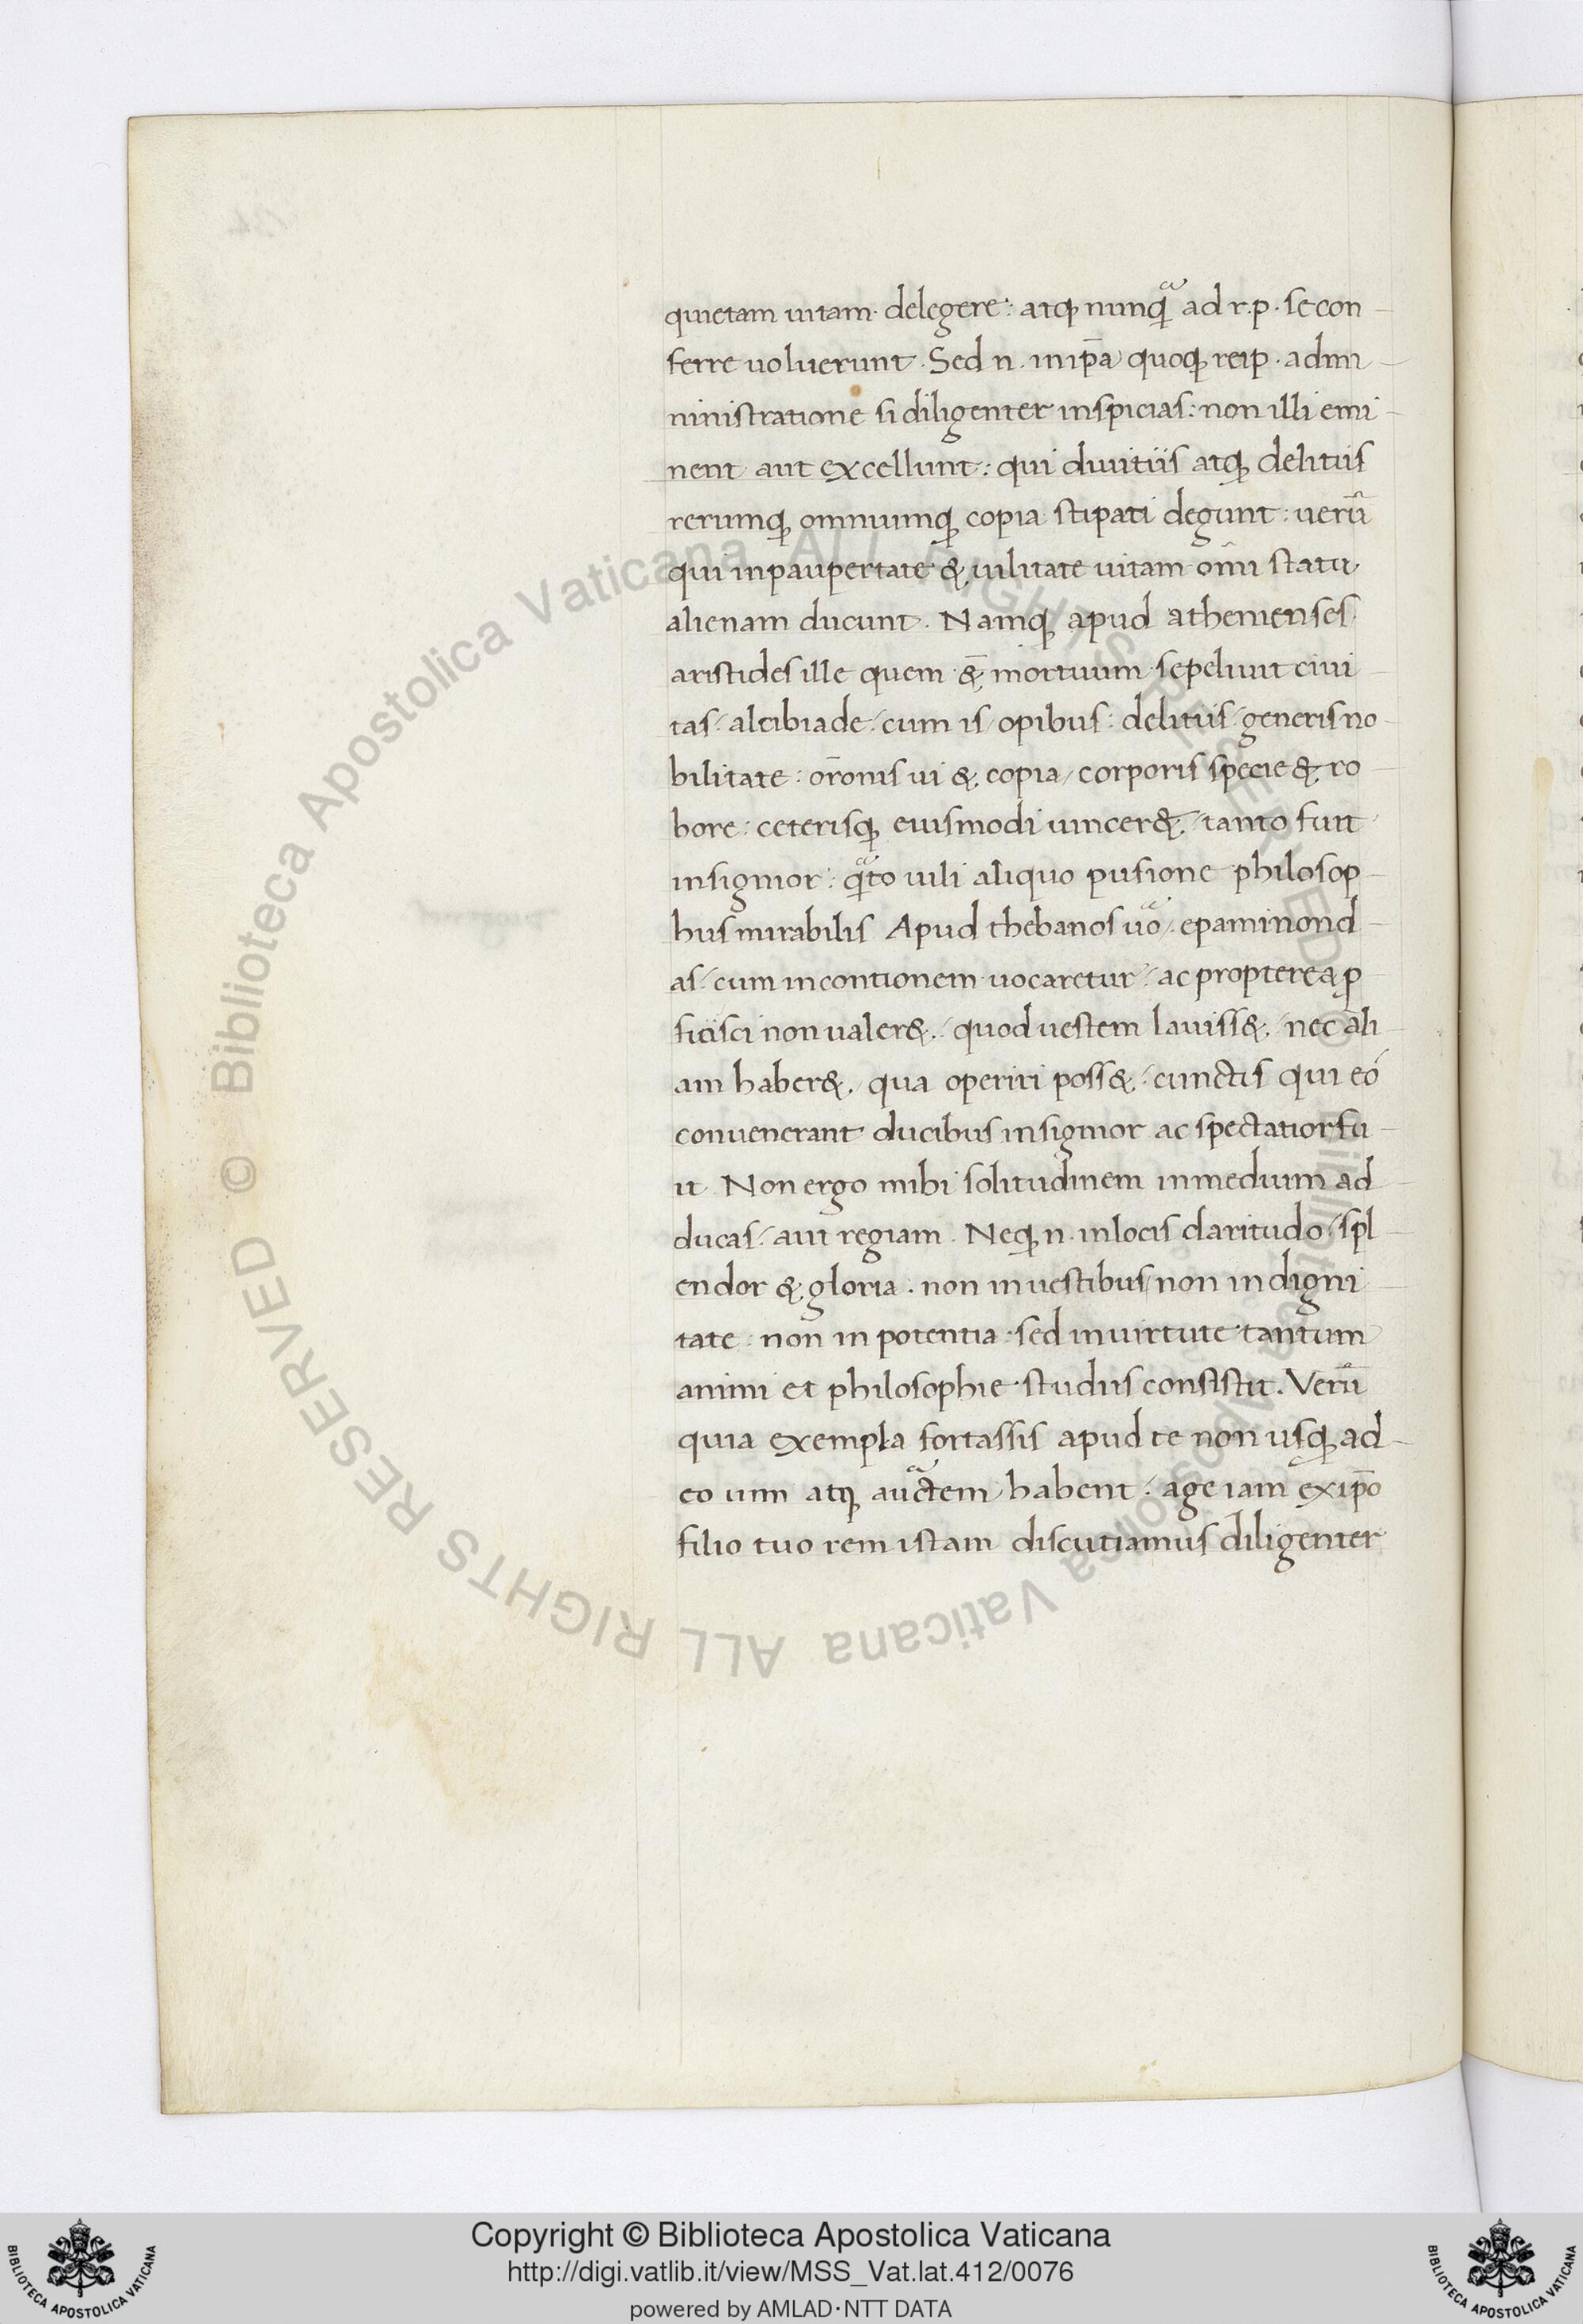 quietam uitam· delegere: atq; nunqͣ ad r.p. se con
ferre uoluerunt. Sed n. in ip̄a quoq; reip. admi
ninistratione si diligenter inspicias: non illi emi
nent aut excellunt: qui diuitiis atq; delitiis
rerumq; omniumq; copia stipati degunt: uerū
qui in paupertate & uilitate uitam om̄i statu
alienam ducunt. Namq; apud athenienses
aristides ille quem &̄ mortuum sepeliuit ciui
tas / alcibiade / cum is / opibus: delitiis / generis no
bilitate: or̄onis ui & copia / corporis specie & ro
bore: ceterisq; eiusmodi uincer& / tanto fuit
insignior: qͣto uili aliquo pusione philosop
hus mirabilis Apud thebanos uo͛ / epaminond
as / cum in contionem uocaretur / ac propterea ꝓ
ficisci non ualer& / quod uestem lauiss& / nec ali
am haber& / qua operiri poss& / cunctis qui eó
conuenerant ducibus insignior ac spectatior fu
it. Non ergo mihi solitudinem in medium ad
ducas / aut regiam. Neq; n. in locis claritudo / spl
endor & gloria. non in uestibus / non in digni
tate: non in potentia: sed in uirtute tantum
animi et philosophie studiis consistit. Verū
quia exempla fortassis apud te non usq; ad
eo uim atq; auctͣem habent / age iam ex ip̄o
filio tuo rem istam discutiamus diligenter
© Biblioteca Apostolica Vaticana ALL RIGHTS RESERVED © Biblioteca Apostolica Vaticana ALL RIGHTS RESERVED
Copyright © Biblioteca Apostolica Vaticana
http://digi.vatlib.it/view/MSS_Vat.lat.412/0076
powered by AMLAD·NTT DATA
BIBLIOTECA APOSTOLICA VATICANA
BIBLIOTECA APOSTOLICA VATICANA